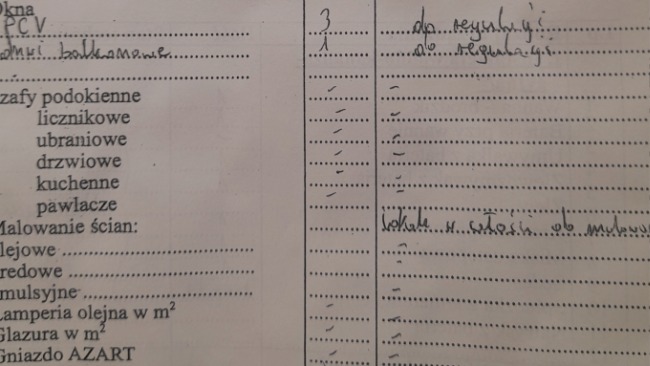 Okna
PCV 3 do regulacji
drzwi balkonowe 1 do regulacji
zafy podokienne - -
licznikowe - -
ubraniowe - -
drzwiowe - -
kuchenne - -
pawłacze - -
Malowanie ścian: lokal w całości do malow
lejowe -
redowe -
mulsyjne -
Lamperia olejna w m² - -
Glazura w m² - -
Gniazdo AZART - -